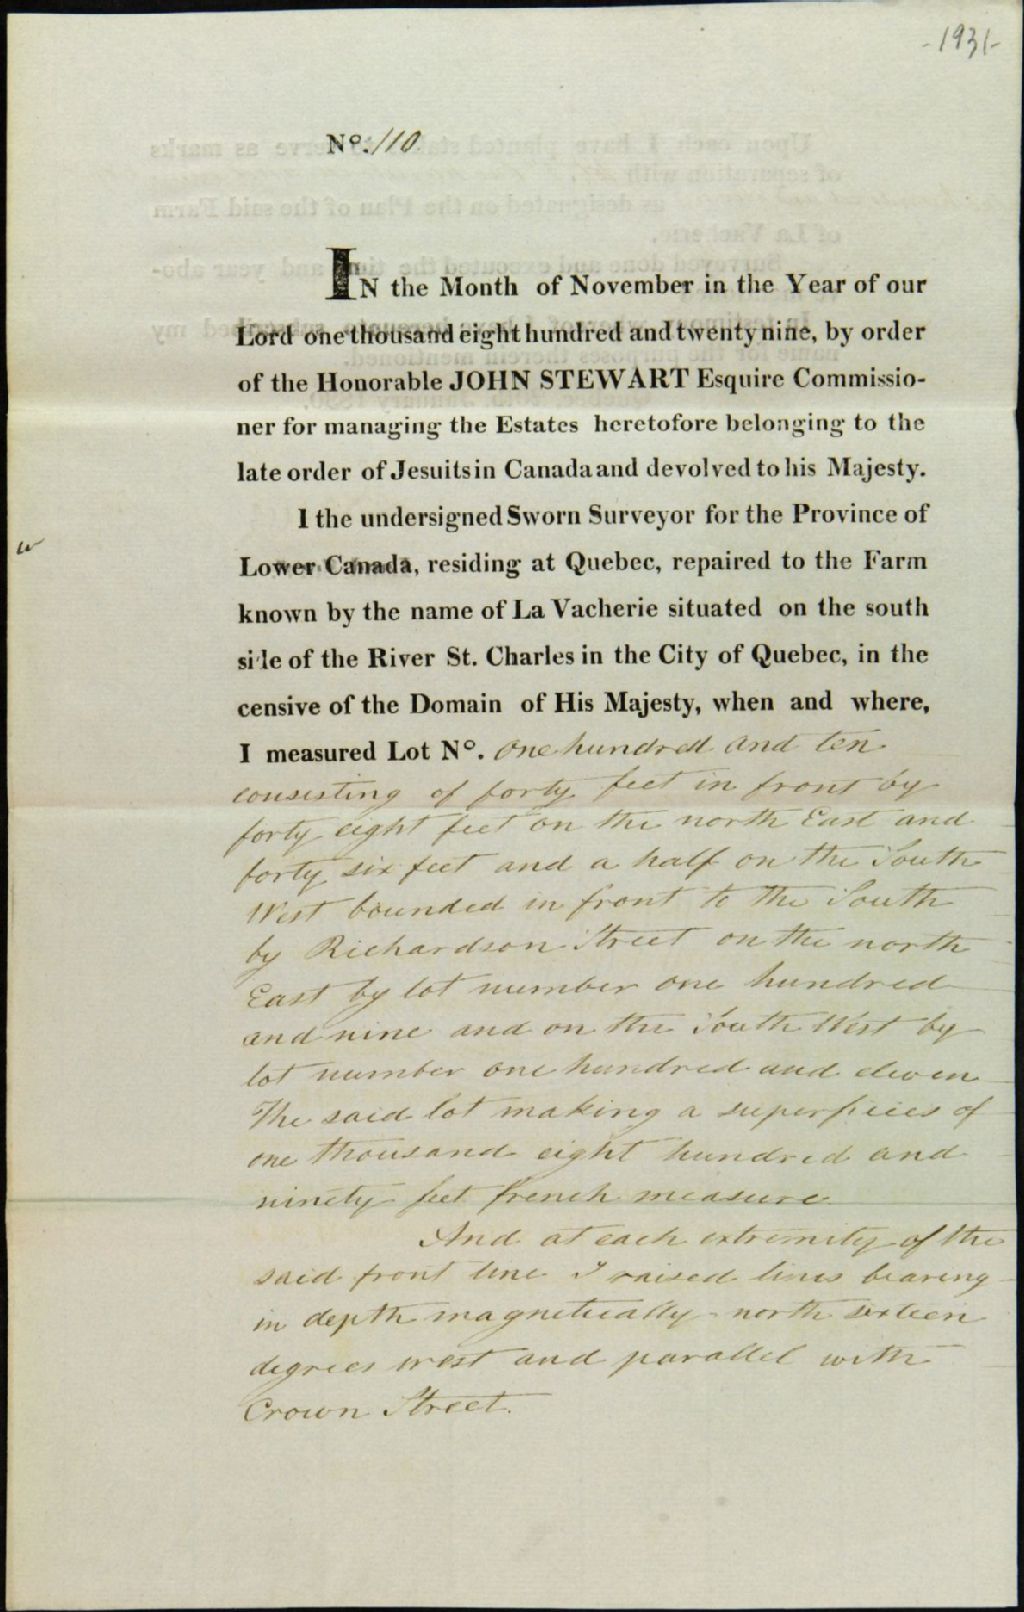 -1931-
No. 110
IN the Month of November in the Year of our
Lord one thousand eight hundred and twenty nine, by order
of the Honorable JOHN STEWART Esquire Commissio-
ner for managing the Estates heretofore belonging to the
late order of Jesuits in Canada and devolved to his Majesty.
I the undersigned Sworn Surveyor for the Province of
Lower Canada, residing at Quebec, repaired to the Farm
known by the name of La Vacherie situated on the south
side of the River St. Charles in the City of Quebec, in the
censive of the Domain of His Majesty, when and where,
I measured Lot No. one hundred and ten
consisting of forty feet in front by
forty eight feet on the north East and
forty six feet and a half on the South
West bounded in front to the South
by Richardson Street on the north
East by lot number one hundred
and nine and on the South West by
lot number one hundred and eleven
The said lot making a superficies of
one thousand eight hundred and
ninety feet french measure
And at each extremity of the
said front line I raised lines bearing
in depth magnetically north sixteen
degrees west and parallel with
Crown Street.